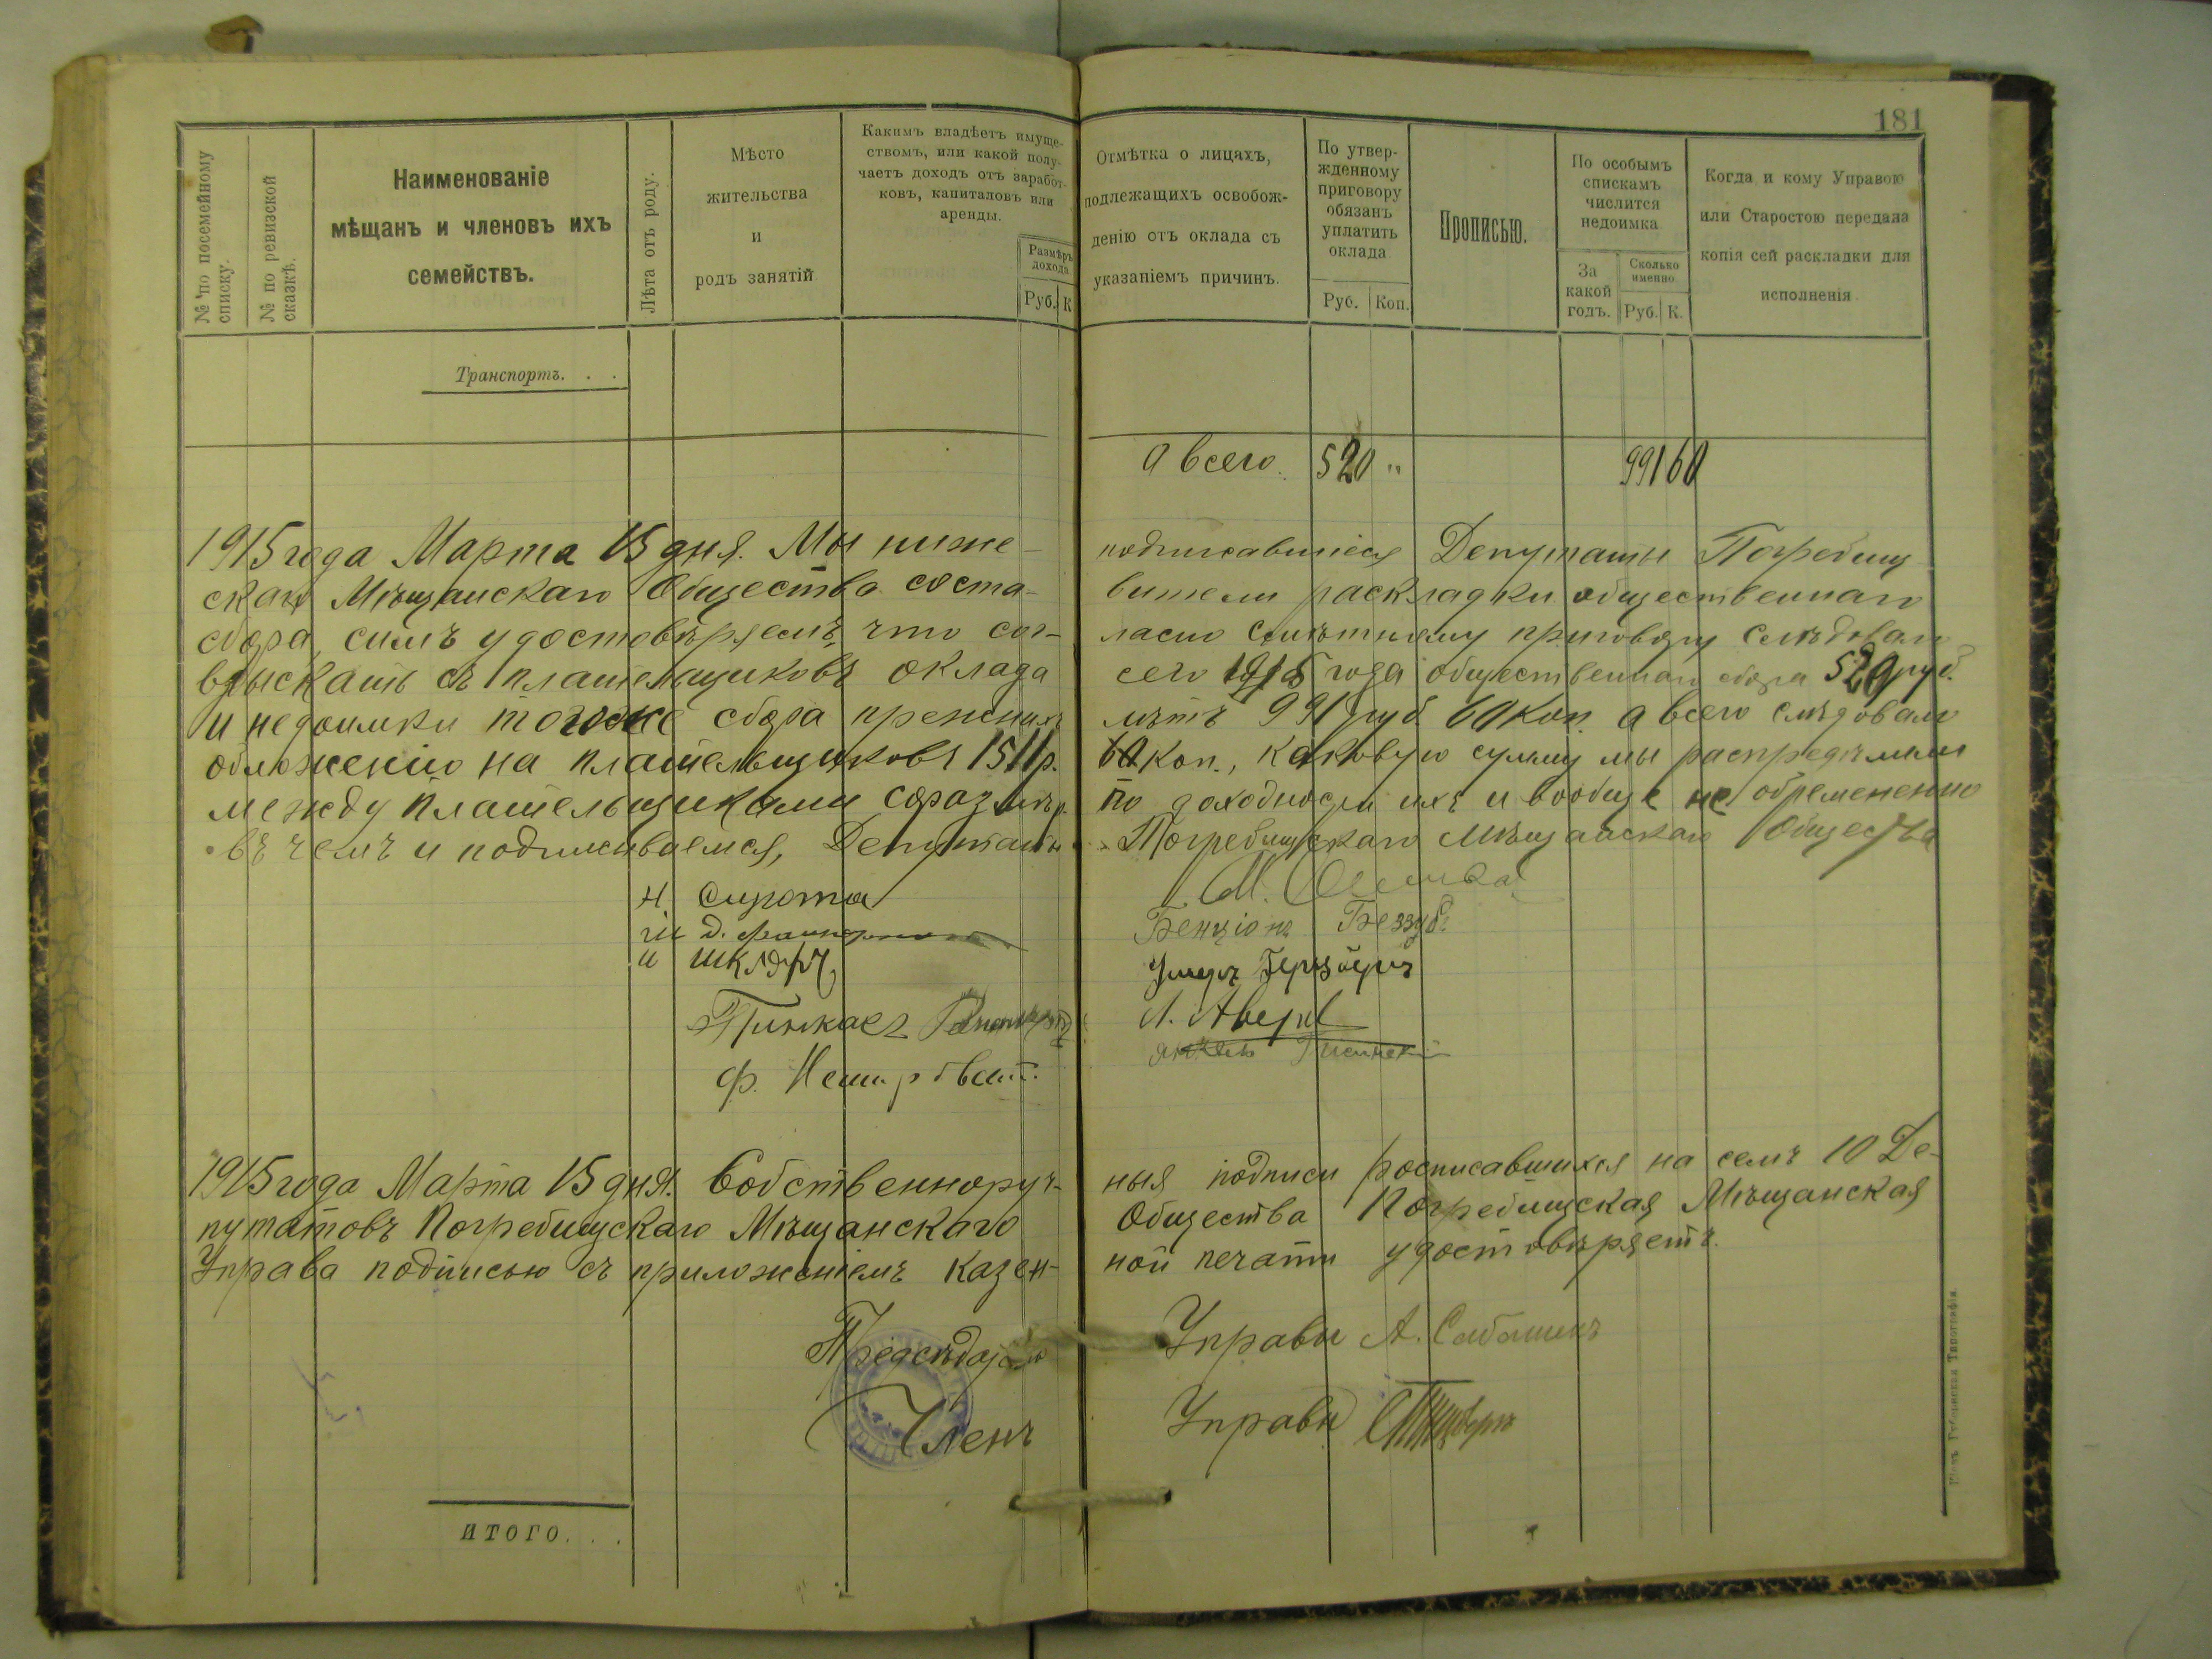 181
№ по посемейному списку.
№ по ревизской сказкѣ.
Наименованіе
мѣщанъ и членовъ ихъ
семействъ.
Лѣта отъ роду.
Мѣсто
жительства
и
родъ занятій
Какимъ владѣетъ имуще-
ствомъ, или какой полу-
чаетъ доходъ отъ заработ-
ковъ, капиталовъ или
аренды.
Размѣръ
дохода.
Руб. К
Отмѣтка о лицахъ,
подлежащихъ освобож-
денію отъ оклада съ
указаніемъ причинъ.
По утвер-
жденному
приговору
обязанъ
уплатить
оклада
Руб. Коп.
Прописью.
По особымъ
спискамъ
числится
недоимка
За
какой
годъ.
Сколько
именно
Руб. К.
Когда и кому Управою
или Старостою передана
копія сей раскладки для
исполненія
Транспортъ. . .
а всего. 520 " 991 60
1915 года Марта 15 дня. Мы ниже- подписавшіеся Депутаты Погребищ
скаго Мѣщанскаго Общества соста- вители раскладки общественнаго
сбора, симъ удостовѣряемъ, что сог- ласно смѣтному приговору слѣдовало
взыскать съ плательщиковъ оклада сего 1915 года общественнаго сбора 520 руб.
и недоимки тогоже сбора прежнихъ лѣтъ 991 руб. 60 коп. а всего слѣдовало
обложенію на плательщиковъ 1511 р. 60 коп., каковую сумму мы распредѣлили
между плательщиками соразмѣр. по доходности ихъ и вообще не обременено
въ чемъ и подписываемся, Депутаты Погребищскаго Мѣщанскаго Общества
Н. Сирота М.
Бенціонъ Беззуб.
и Шкляръ Герцбергъ
Пинкасъ Л. Аверб
Ф. Немировскій
1915 года Марта 15 дня. Собственноруч- ныя подписи росписавшихся на семъ 10 Де-
путатовъ Погребищскаго Мѣщанскаго Общества Погребищская Мѣщанская
Управа подписью съ приложеніемъ казен- ной печати удостовѣряетъ.
Предсѣдатель Управы А.
Членъ Управы
ИТОГО. . .
Типографія.